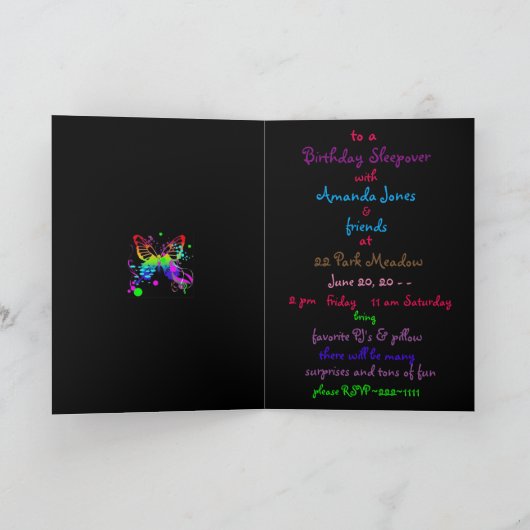 to a
Birthday Sleepover
with
Amanda Jones
&
friends
at
22 Park Meadow
June 20, 20 - -
2 pm Friday 11 am Saturday
bring
favorite PJ's & pillow
there will be many
surprises and tons of fun
please RSVP ~222~1111